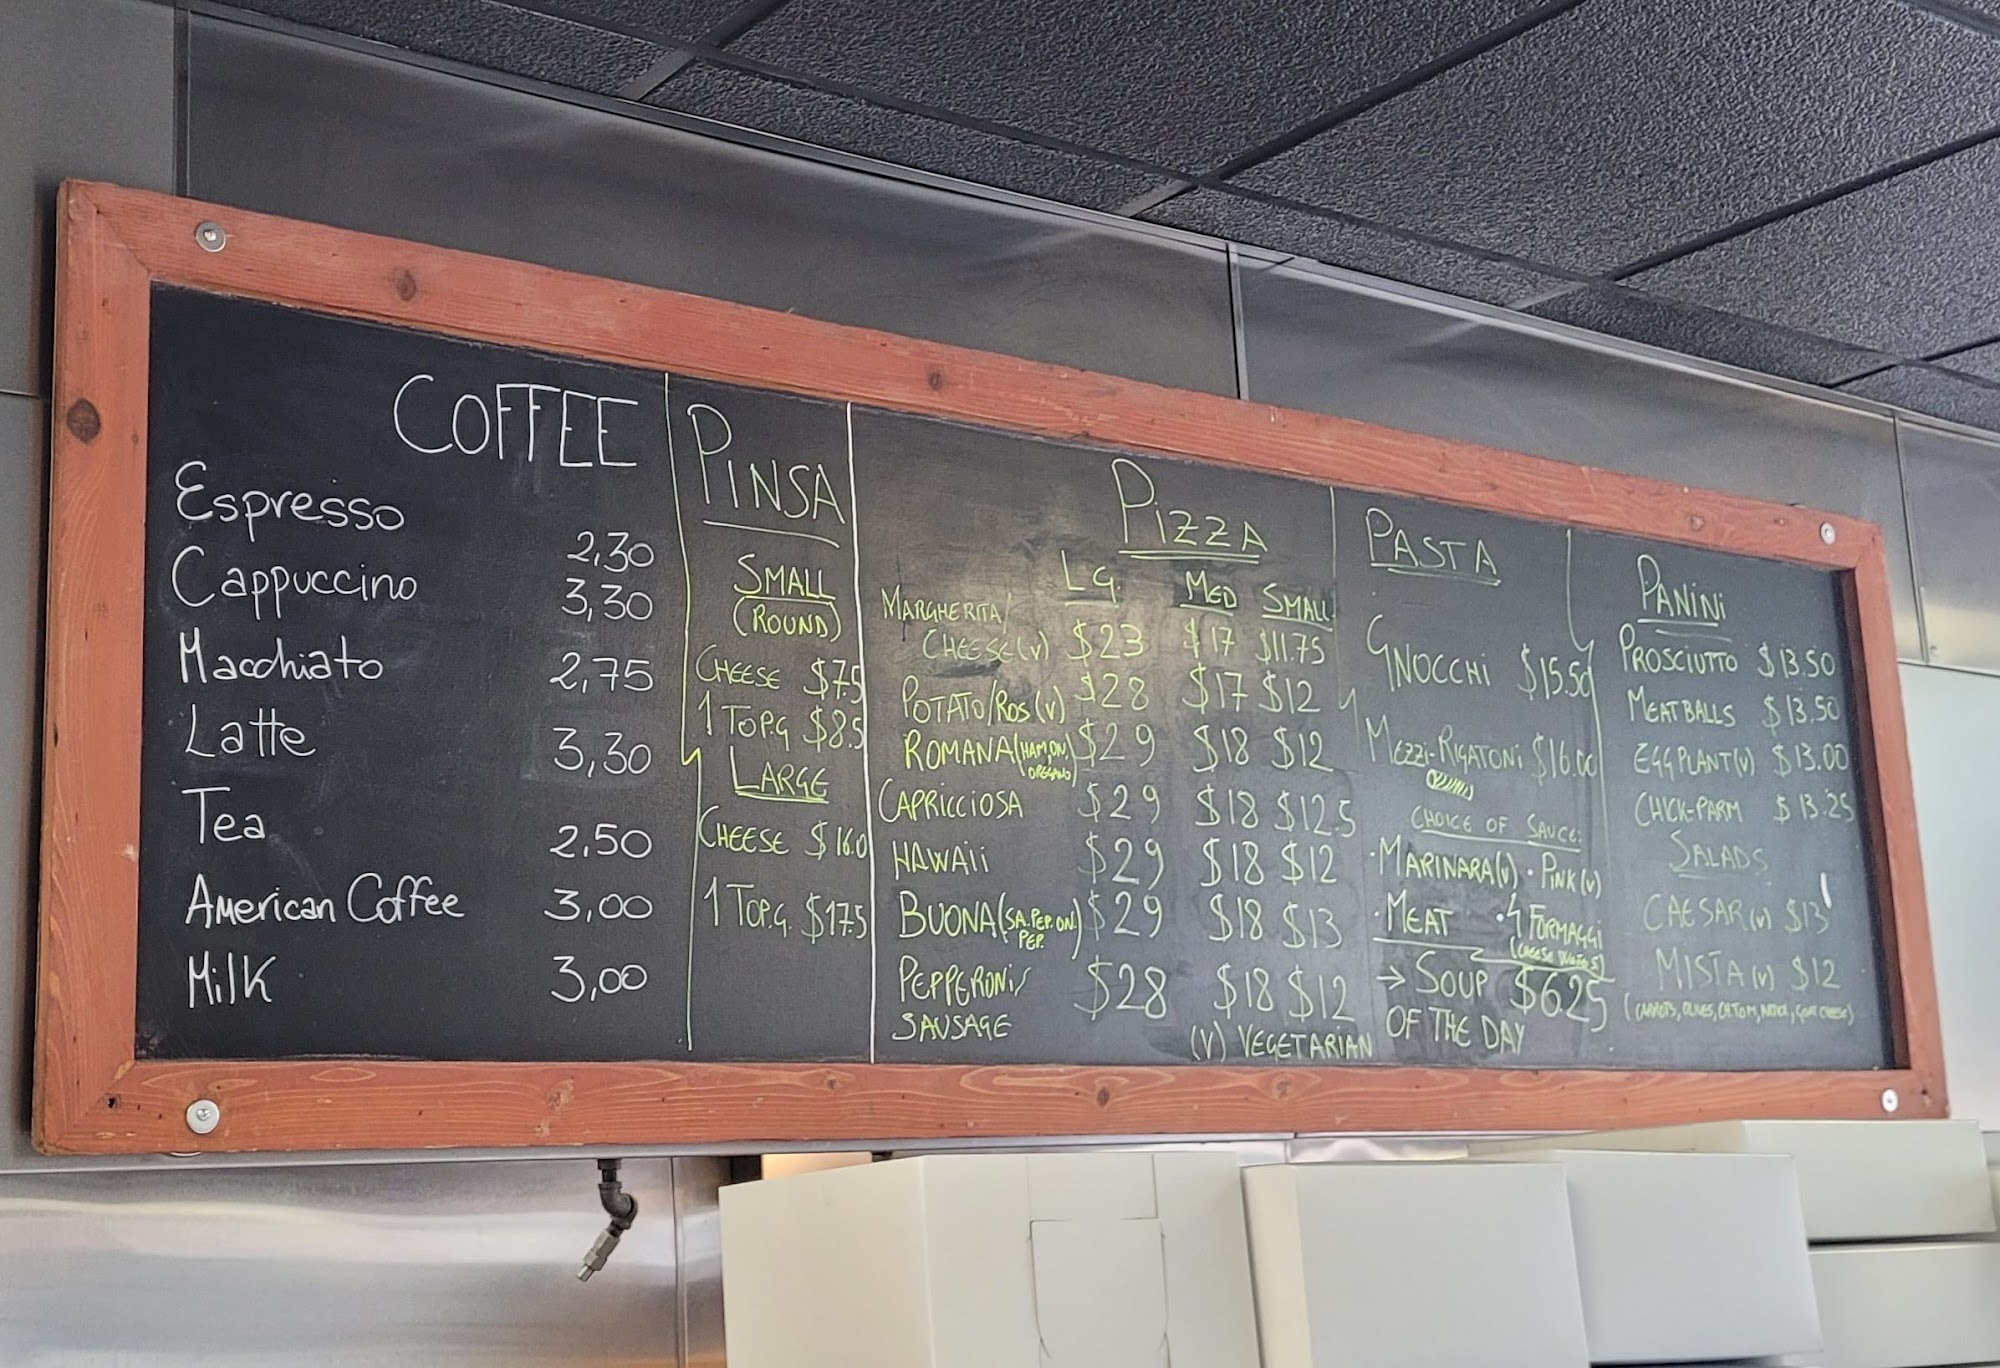 COFFEE
Espresso 2,30
Cappuccino 3,30
Macchiato 2,75
Latte 3,30
Tea 2,50
American Coffee 3,00
Milk 3,00
PINSA
SMALL
(ROUND)
CHEESE $7.5
1 TOP.G $8.5
LARGE
CHEESE $16.0
1 TOP.G. $17.5
PIZZA
LG. MED SMALL
MARGHERITA/
CHEESE(V) $23 $17 $11.75
POTATO/ROS(V) $28 $17 $12
ROMANA(HAM,ON, $29 $18 $12
OREGANO)
CAPRICCIOSA $29 $18 $12.5
HAWAII $29 $18 $12
BUONA(SA.PEP.ON. $29 $18 $13
PEP.)
PEPPERONI/ $28 $18 $12
SAUSAGE
(V) VEGETARIAN
PASTA
GNOCCHI $15.50
MEZZI-RIGATONI $16.00
CHOICE OF SAUCE:
·MARINARA(V) ·PINK(V)
·MEAT ·4 FORMAGGI
→ SOUP $6.25
OF THE DAY
PANINI
PROSCIUTTO $13.50
MEATBALLS $13.50
EGGPLANT(V) $13.00
CHICK-PARM $13.25
SALADS
CAESAR(V) $13
MISTA(V) $12
(CARROTS, OLIVES, GOAT CHEESE)